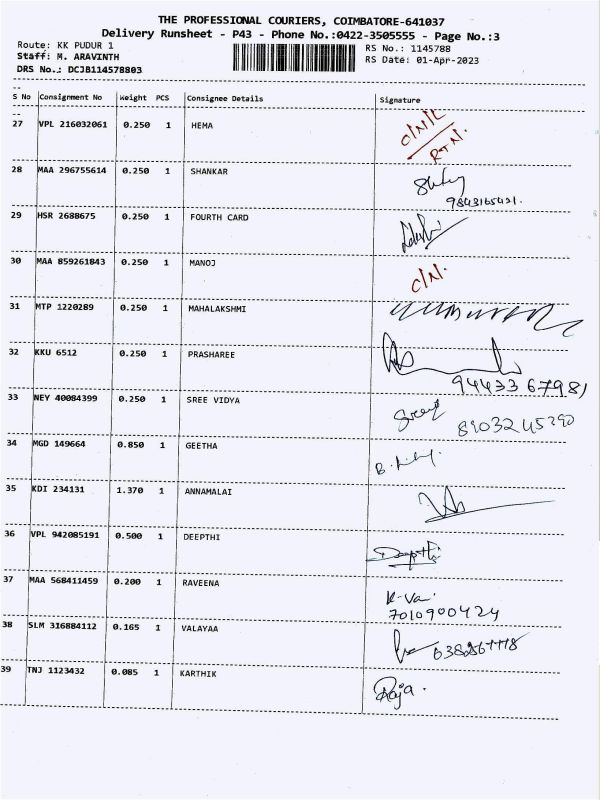 THE PROFESSIONAL COURIERS, COIMBATORE-641037
Delivery Runsheet - P43 - Phone No.:0422-3505555 - Page No.:3
Route: KK PUDUR 1
Staff: M. ARAVINTH
DRS No.: DCJB114578803
RS No.: 1145788
RS Date: 01-Apr-2023
S No Consignment No Weight PCS Consignee Details Signature
27 VPL 216032061 0.250 1 HEMA C/N/L
RTN.
28 MAA 296755614 0.250 1 SHANKAR
9843165421.
29 HSR 2688675 0.250 1 FOURTH CARD
30 MAA 859261843 0.250 1 MANOJ C/N.
31 MTP 1220289 0.250 1 MAHALAKSHMI
32 KKU 6512 0.250 1 PRASHAREE
9443367981
33 NEY 40084399 0.250 1 SREE VIDYA
8903245290
34 MGD 149664 0.850 1 GEETHA
35 KDI 234131 1.370 1 ANNAMALAI
36 VPL 942085191 0.500 1 DEEPTHI Deepthi
37 MAA 568411459 0.200 1 RAVEENA
7010900424
38 SLM 316884112 0.165 1 VALAYAA
39 TNJ 1123432 0.085 1 KARTHIK Raja.